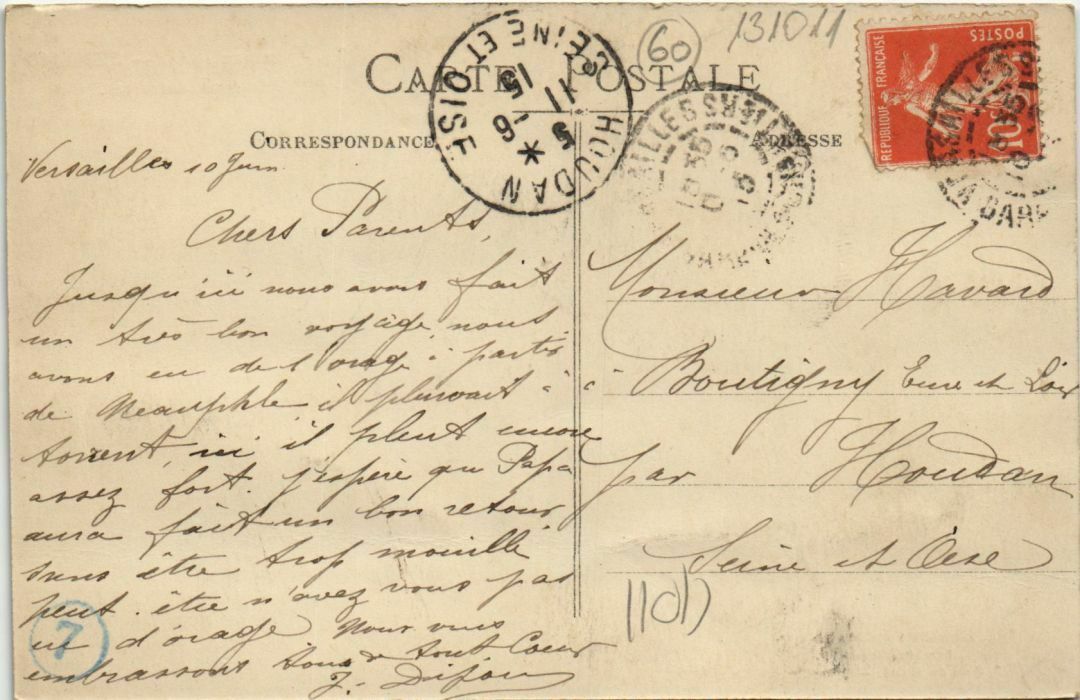 CARTE POSTALE
CORRESPONDANCE
ADRESSE
60
131011
HOUDAN
SEINE ET OISE
15
11
5 - 6
VERSAILLES
REPUBLIQUE FRANÇAISE
POSTES
10c
Versailles 10 Juin
Chers Parents,
Jusqu'ici nous avons fait
un très bon voyage, nous
avons eu de l'orage à partir
de Neauphle il pleuvait à
torrent, ici il pleut encore
assez fort. j'espère que Papa
aura fait un bon retour
sans être trop mouillé
peut-être n'avez vous pas
eu d'orage Nous vous
embrassons tous de tout Coeur
7
Monsieur Havard
à Boutigny Eure et Loir
par Houdan
Seine et Oise